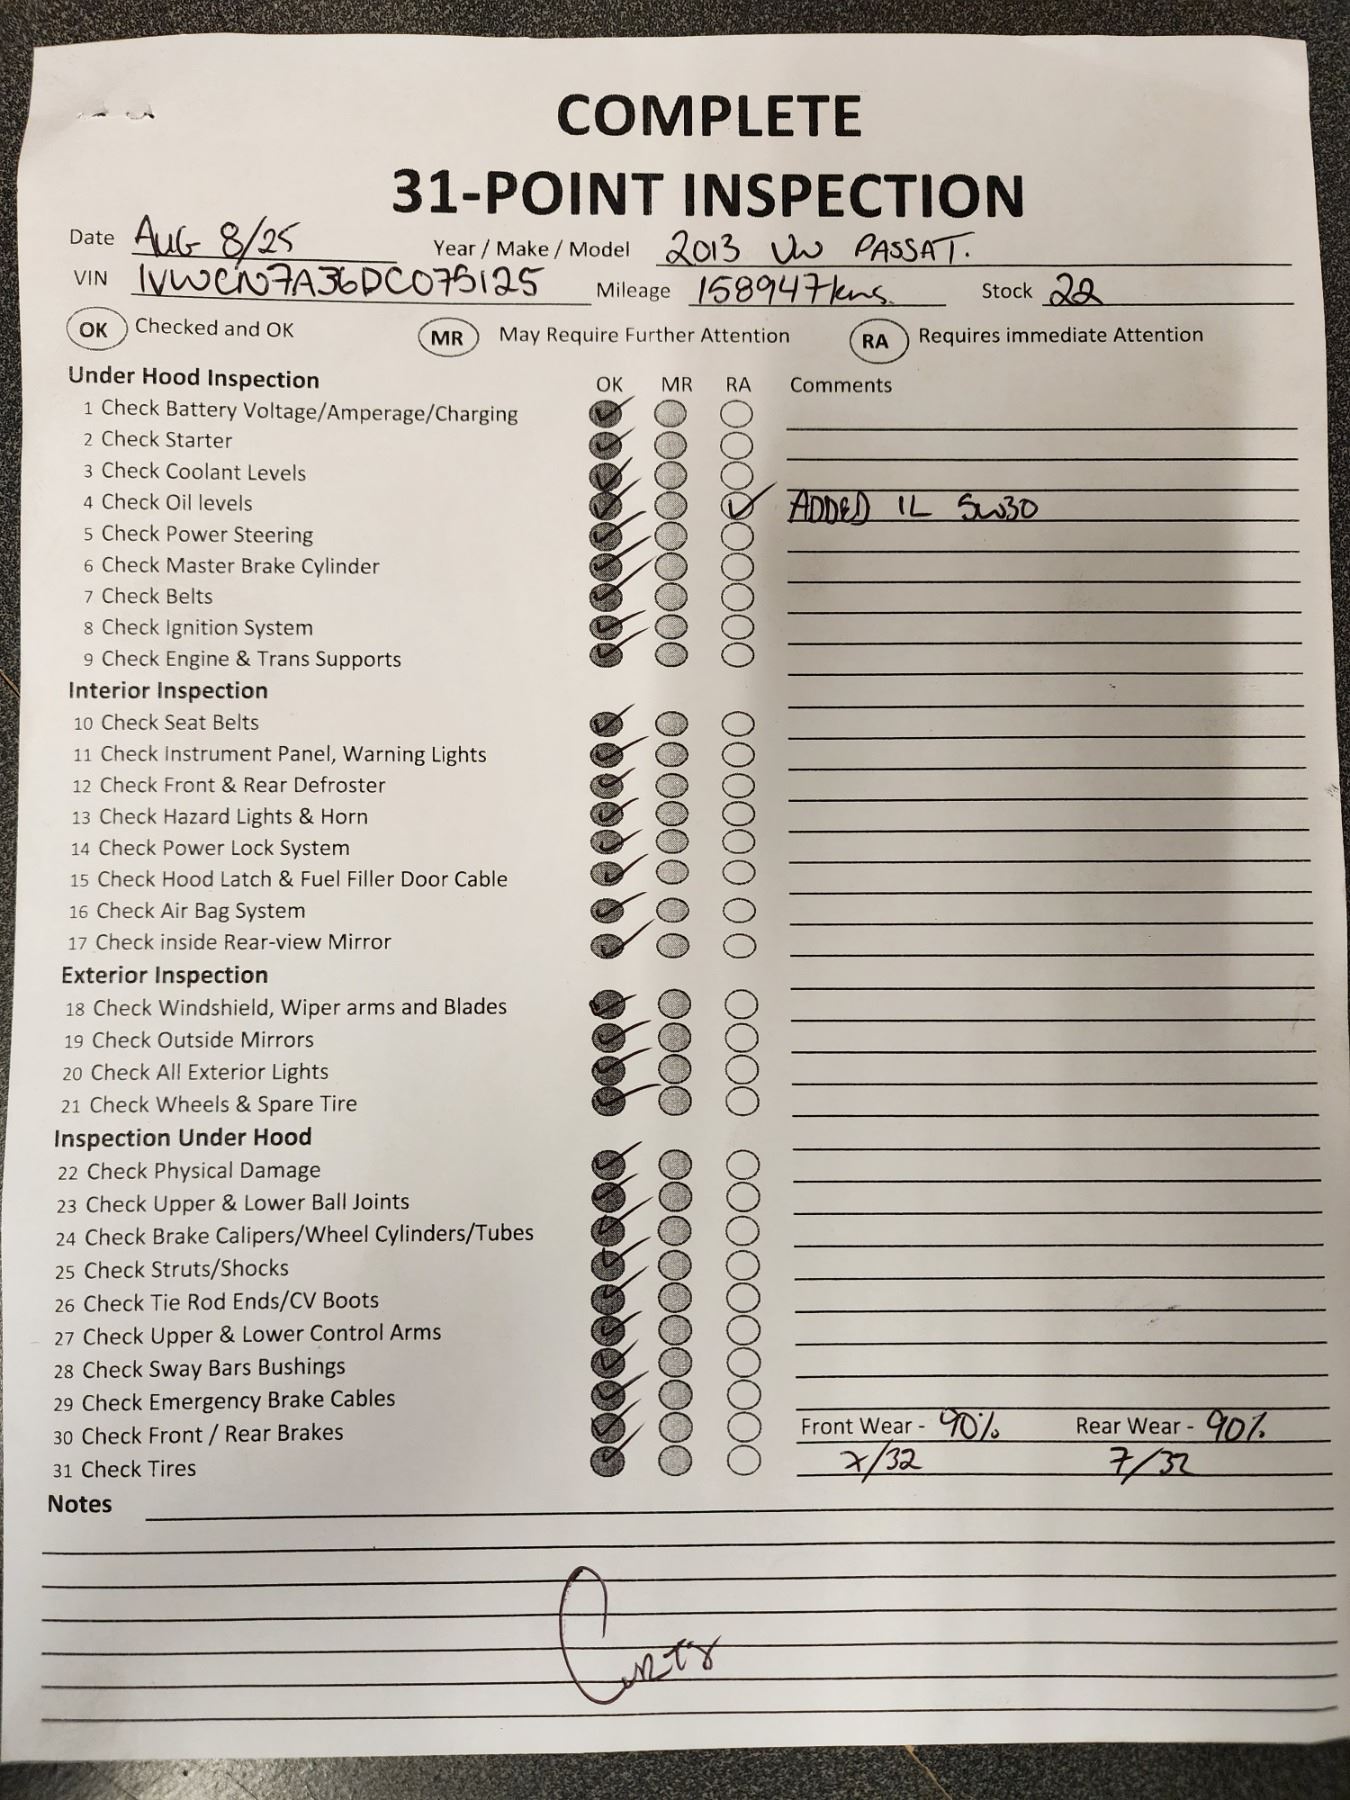 COMPLETE
31-POINT INSPECTION
Date AUG 8/25 Year / Make / Model 2013 VW PASSAT.
VIN 1VWCN7A36DC075125 Mileage 158947kms. Stock 22
OK Checked and OK MR May Require Further Attention RA Requires immediate Attention
Under Hood Inspection OK MR RA Comments
1 Check Battery Voltage/Amperage/Charging
2 Check Starter
3 Check Coolant Levels
4 Check Oil levels ADDED 1L 5W30
5 Check Power Steering
6 Check Master Brake Cylinder
7 Check Belts
8 Check Ignition System
9 Check Engine & Trans Supports
Interior Inspection
10 Check Seat Belts
11 Check Instrument Panel, Warning Lights
12 Check Front & Rear Defroster
13 Check Hazard Lights & Horn
14 Check Power Lock System
15 Check Hood Latch & Fuel Filler Door Cable
16 Check Air Bag System
17 Check inside Rear-view Mirror
Exterior Inspection
18 Check Windshield, Wiper arms and Blades
19 Check Outside Mirrors
20 Check All Exterior Lights
21 Check Wheels & Spare Tire
Inspection Under Hood
22 Check Physical Damage
23 Check Upper & Lower Ball Joints
24 Check Brake Calipers/Wheel Cylinders/Tubes
25 Check Struts/Shocks
26 Check Tie Rod Ends/CV Boots
27 Check Upper & Lower Control Arms
28 Check Sway Bars Bushings
29 Check Emergency Brake Cables
30 Check Front / Rear Brakes Front Wear - 90% Rear Wear - 90%
31 Check Tires 7/32 7/32
Notes